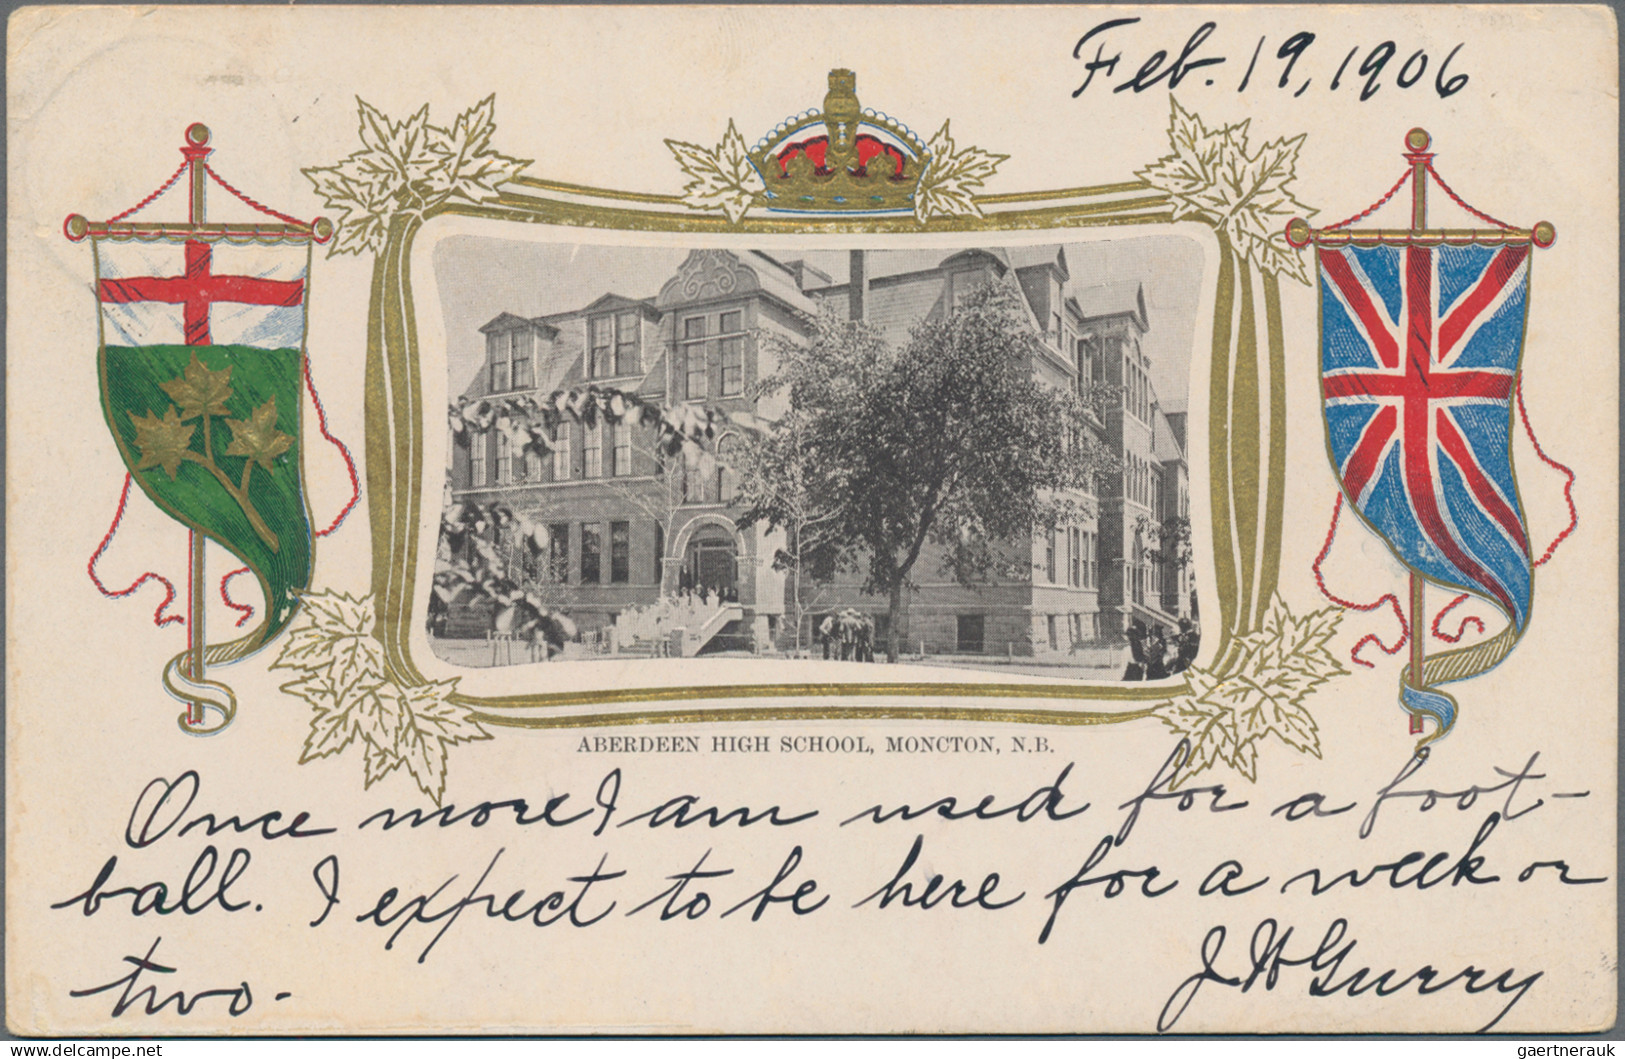 Feb. 19, 1906
ABERDEEN HIGH SCHOOL, MONCTON, N.B.
Once more I am used for a foot-
ball. I expect to be here for a week or
two.
J H Gurry
gaertnerauk